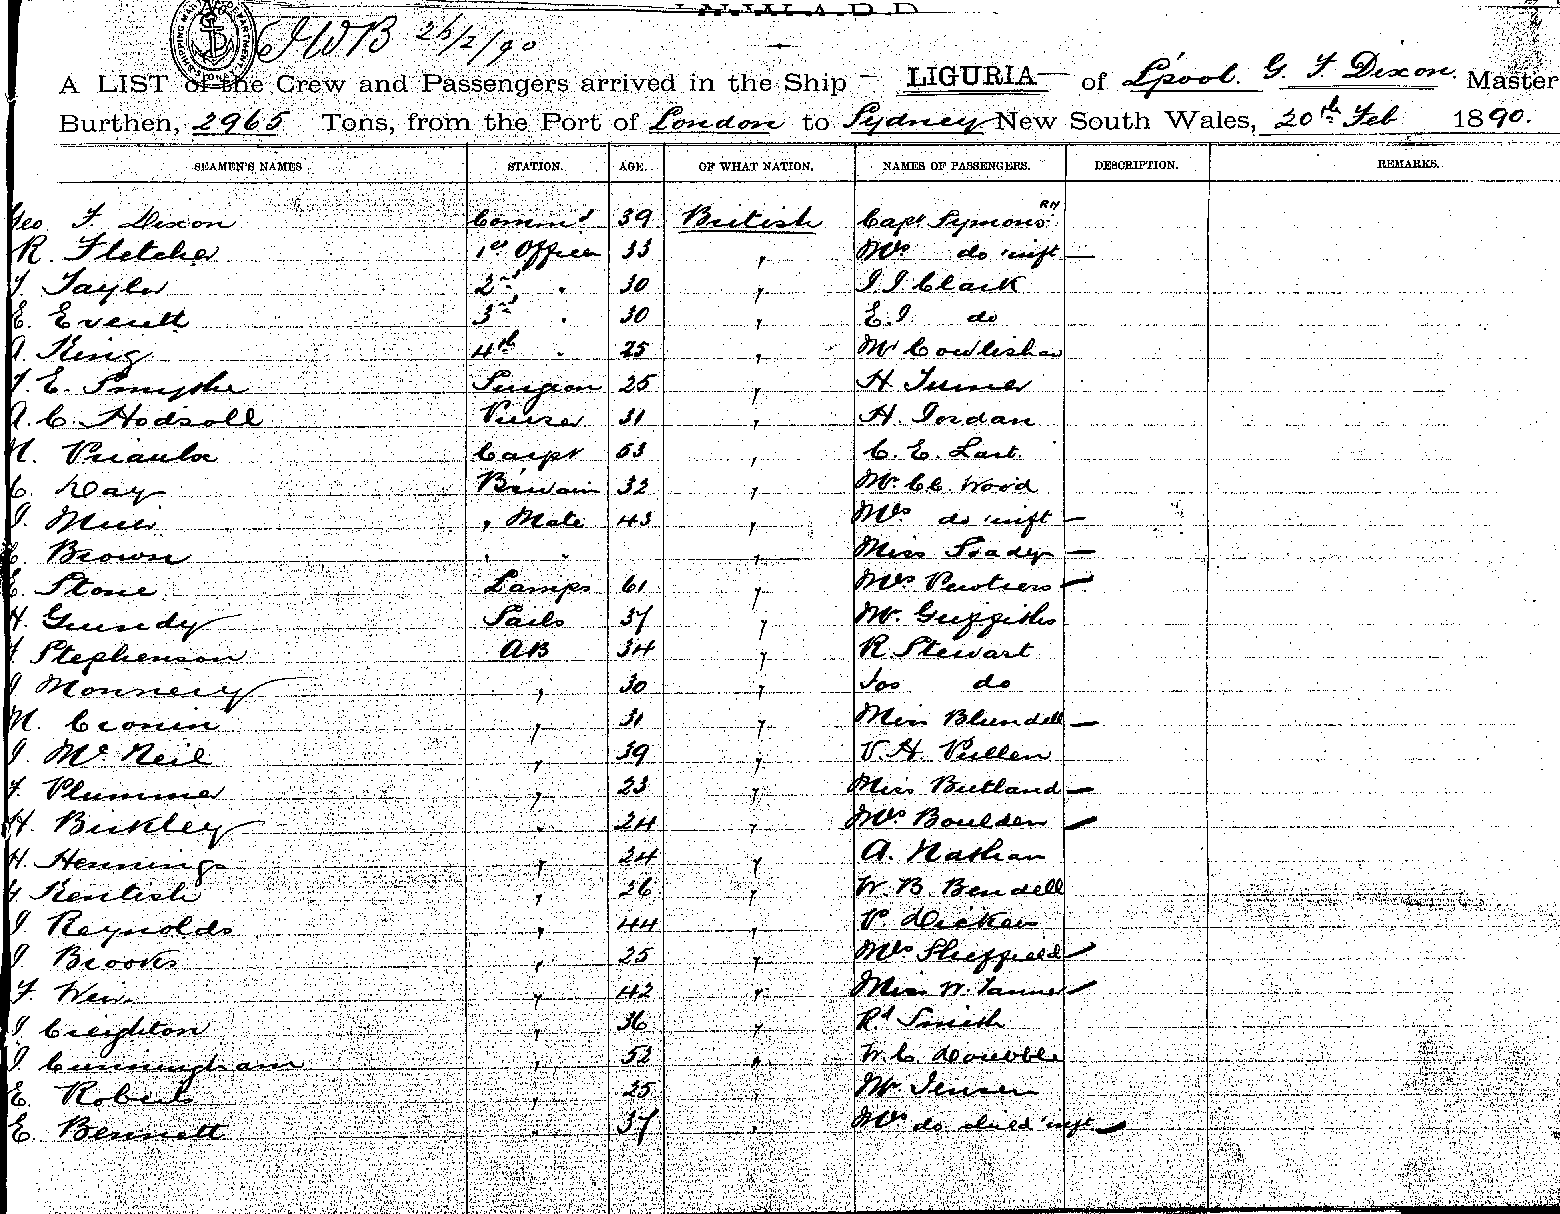 INWARD
JWB 26/2/90
A LIST of the Crew and Passengers arrived in the Ship LIGURIA of L'pool. G. F. Dixon. Master
Burthen, 2965 Tons, from the Port of London to Sydney New South Wales, 20th Feb 1890.
SEAMEN'S NAMES STATION. AGE. OF WHAT NATION. NAMES OF PASSENGERS. DESCRIPTION. REMARKS.
Geo F. Dixon Comm'd 39 British Capt Symons RN
R. Fletcher 1st Officer 33 " Mrs do
Taylor 2nd " 30 " Clark
E. Everett 3rd " 30 " E. J. do
A. King 4th " 25 " Mr Cowlishaw
E. Smythe Surgeon 25 " H. Turner
A. C. Hodsoll Purser 31 " H. Jordan
Priaulx Carpr 53 " C. E. Last
C. Day B'swain 32 " Mr Wood
J. Muir " Mate 43 " Mrs do
E Brown " " " Miss
E. Stone Lamps 61 " Mrs
H. Grundy Sails 37 " Mr. Griffiths
Stephenson AB 34 " R Stewart
J Monnery " 30 " Jos do
M. Cronin " 31 " Miss Blundell
J McNeil " 39 " V. H. Pullen
F. Plummer " 23 " Miss Butland
H. Bickley " 24 " Mrs Boulden
H. Hennings " 24 " A. Nathan
Kentish " 26 " W. B. Bendell
J Reynolds " 44 " Dicker
J Brooks " 25 " Mrs Sheffield
F. Weir " 42 " Miss W. Tanner
J Creighton " 36 " Rd Smith
J Cunningham " 52 " W. C. Doubble
E. Roberts " 25 " Mr Jensen
E. Bennett " 37 " Mrs do child